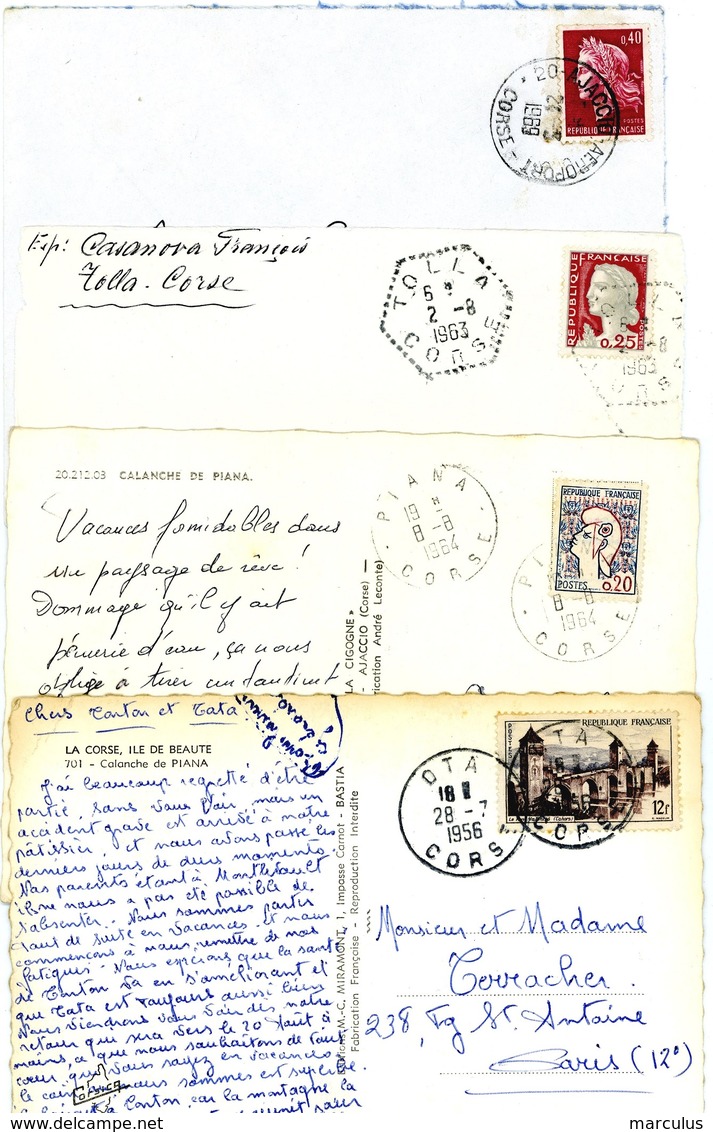 0,40
POSTES
REPUBLIQUE FRANÇAISE
20-AJACCIO-AEROPORT
1969
CORSE
Exp: Casanova François
Tolla-Corse
TOLLA
6 H
2 -8
1963
CORSE
REPUBLIQUE FRANÇAISE
POSTES
0,25
1963
20.212.03 CALANCHE DE PIANA.
Vacances formidables dans
un paysage de rêve!
Dommage qu'il y ait
pénurie d'eau, ça nous
oblige à tirer un tantinet
LA CIGOGNE »
- AJACCIO (Corse) -
André Leconte)
PIANA
19 H
8 -8
1964
CORSE
REPUBLIQUE FRANÇAISE
POSTES
0,20
PIANA
8 -8
1964
CORSE
Chers Tonton et Tata
LA CORSE, ILE DE BEAUTE
701 - Calanche de PIANA
J'ai beaucoup regretté d'être
partie, sans vous voir, mais un
accident grave est arrivé à notre
pâtissier, et nous avons passé les
derniers jours de durs moments.
Nos parents étant à
il ne nous a pas été possible de
s'absenter. Nous sommes partis
tout de suite en vacances et nous
commençons à nous remettre de nos
fatigues. Nous espérons que la santé
de Tonton va en s'améliorant et
que Tata est toujours aussi bien
Nous viendrons vous voir dès notre
retour que sera vers le 20 Août à
moins, ce que nous souhaitons de tout
cœur, que vous soyez en vacances
le coin où nous sommes est superbe
à Tonton, car la montagne la
COPUCA
Editions M.-C. MIRAMONT, 1, Impasse Carnot - BASTIA
Fabrication Française - Reproduction Interdite
OTA
18 H
28 -7
1956
CORSE
POSTES
REPUBLIQUE FRANÇAISE
12f
OTA
Monsieur et Madame
Terracher
238, Fg St. Antoine
Paris (12°)
marculus